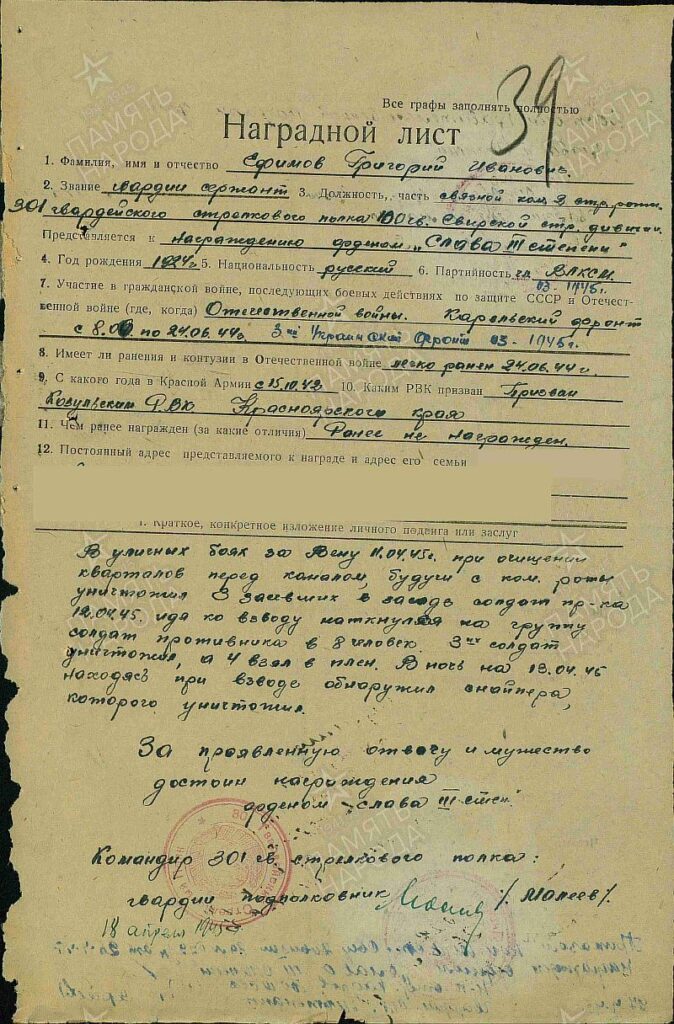 39
Все графы заполнять полностью
Наградной лист
1. Фамилия, имя и отчество Ефимов Григорий Иванович.
2. Звание гвардии сержант 3. Должность, часть связной ком. 9 стр. роты
301 гвардейского стрелкового полка 100 гв. Свирской стр. дивизии
Представляется к награждению орденом „Слава III степени"
4. Год рождения 1924г 5. Национальность русский 6. Партийность чл. ВЛКСМ.
03. 1945г.
7. Участие в гражданской войне, последующих боевых действиях по защите СССР и Отечест-
венной войне (где, когда) Отечественной войны. Карельский фронт
по 24.06.44г. 3ий Украинский фронт 03 - 1945г.
8. Имеет ли ранения и контузии в Отечественной войне легко ранен 24.06.44г
9. С какого года в Красной Армии с 15.10.42 10. Каким РВК призван Призван
Козульским РВК Красноярского края
11. Чем ранее награжден (за какие отличия) Ранее не награжден.
12. Постоянный адрес представляемого к награде и адрес его семьи
1. Краткое, конкретное изложение личного подвига или заслуг
В уличных боях за Вену 11.04.45г. при очищении
кварталов перед каналом, будучи с ком. роты
уничтожил 3 засевших в засаде солдат пр-ка
12.04.45. идя ко взводу наткнулся на группу
солдат противника в 8 человек. 3их солдат
уничтожил, а 4 взял в плен. В ночь на 13.04.45
находясь при взводе обнаружил снайпера,
которого уничтожил.
За проявленную отвагу и мужество
достоин награждения
орденом - слава III степ.
Командир 301 гв. стрелкового полка:
гвардии подполковник /. Малеев/.
18 апреля 1945г
ПАМЯТЬ
НАРОДА